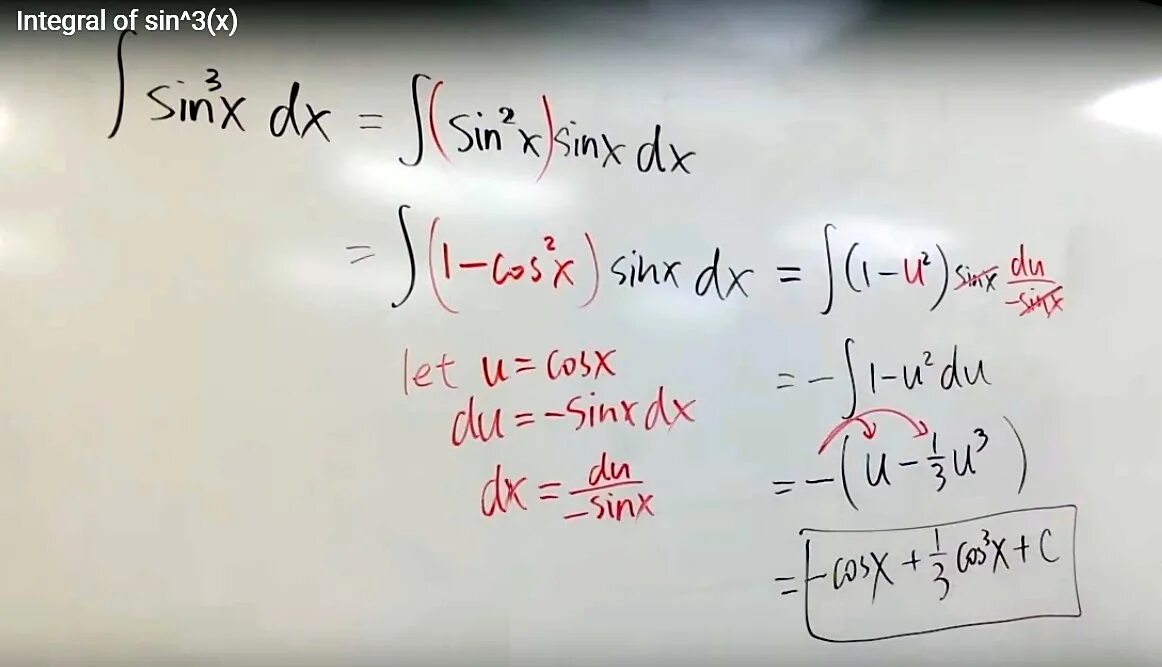 Integral of sin^3(x)
∫ sin³x dx = ∫(sin²x)sinx dx
= ∫(1-cos²x) sinx dx = ∫(1-u²) sinx du/-sinx
let u = cosx
du = -sinx dx
dx = du/-sinx
= -∫1-u² du
= -(u - 1/3 u³)
= -cosx + 1/3 cos³x + C